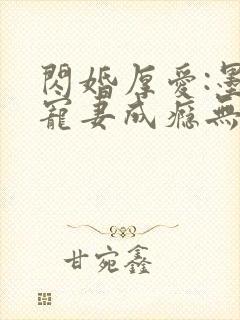 閃婚厚愛:墨
寵妻成癮無
甘宛鑫